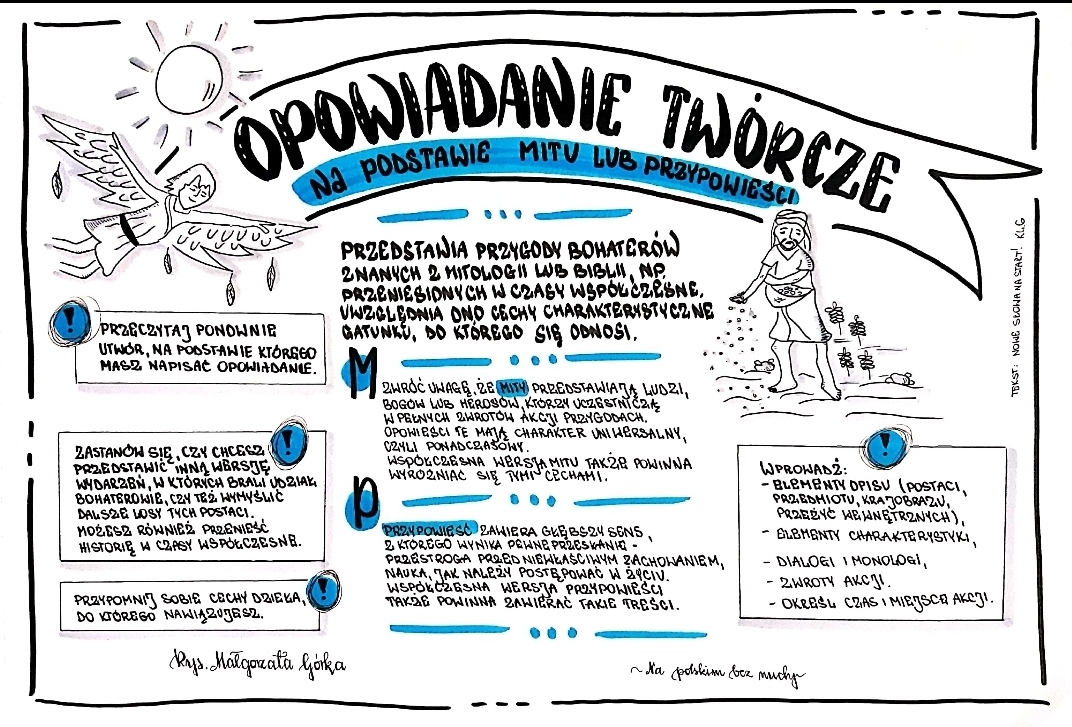 OPOWIADANIE TWÓRCZE
NA PODSTAWIE MITU LUB PRZYPOWIEŚCI
PRZEDSTAWIA PRZYGODY BOHATERÓW
ZNANYCH Z MITOLOGII LUB BIBLII, NP.
PRZENIESIONYCH W CZASY WSPÓŁCZESNE.
UWZGLĘDNIA ONO CECHY CHARAKTERYSTYCZNE
GATUNKU, DO KTÓREGO SIĘ ODNOSI.
! PRZECZYTAJ PONOWNIE
UTWÓR, NA PODSTAWIE KTÓREGO
MASZ NAPISAĆ OPOWIADANIE.
!
ZASTANÓW SIĘ, CZY CHCESZ
PRZEDSTAWIĆ INNĄ WERSJĘ
WYDARZEŃ, W KTÓRYCH BRALI UDZIAŁ
BOHATEROWIE, CZY TEŻ WYMYŚLIĆ
DALSZE LOSY TYCH POSTACI.
MOŻESZ RÓWNIEŻ PRZENIEŚĆ
HISTORIĘ W CZASY WSPÓŁCZESNE.
!
PRZYPOMNIJ SOBIE CECHY DZIEŁA,
DO KTÓREGO NAWIĄZUJESZ.
M
ZWRÓĆ UWAGĘ, ŻE MITY PRZEDSTAWIAJĄ LUDZI,
BOGÓW LUB HEROSÓW, KTÓRZY UCZESTNICZĄ
W PEŁNYCH ZWROTÓW AKCJI PRZYGODACH.
OPOWIEŚCI TE MAJĄ CHARAKTER UNIWERSALNY,
CZYLI PONADCZASOWY.
WSPÓŁCZESNA WERSJA MITU TAKŻE POWINNA
WYRÓŻNIAĆ SIĘ TYMI CECHAMI.
P
PRZYPOWIEŚĆ ZAWIERA GŁĘBSZY SENS,
Z KTÓREGO WYNIKA PEWNE PRZESŁANIE -
PRZESTROGA PRZED NIEWŁAŚCIWYM ZACHOWANIEM,
NAUKA, JAK NALEŻY POSTĘPOWAĆ W ŻYCIU.
WSPÓŁCZESNA WERSJA PRZYPOWIEŚCI
TAKŻE POWINNA ZAWIERAĆ TAKIE TREŚCI.
!
WPROWADŹ:
- ELEMENTY OPISU (POSTACI,
PRZEDMIOTU, KRAJOBRAZU,
PRZEŻYĆ WEWNĘTRZNYCH),
- ELEMENTY CHARAKTERYSTYKI,
- DIALOGI I MONOLOGI,
- ZWROTY AKCJI.
- OKREŚL CZAS I MIEJSCE AKCJI.
TEKST: NOWE SŁOWA NA START! KL.6
Rys. Małgorzata Górka
~ Na polskim bez nudy ~